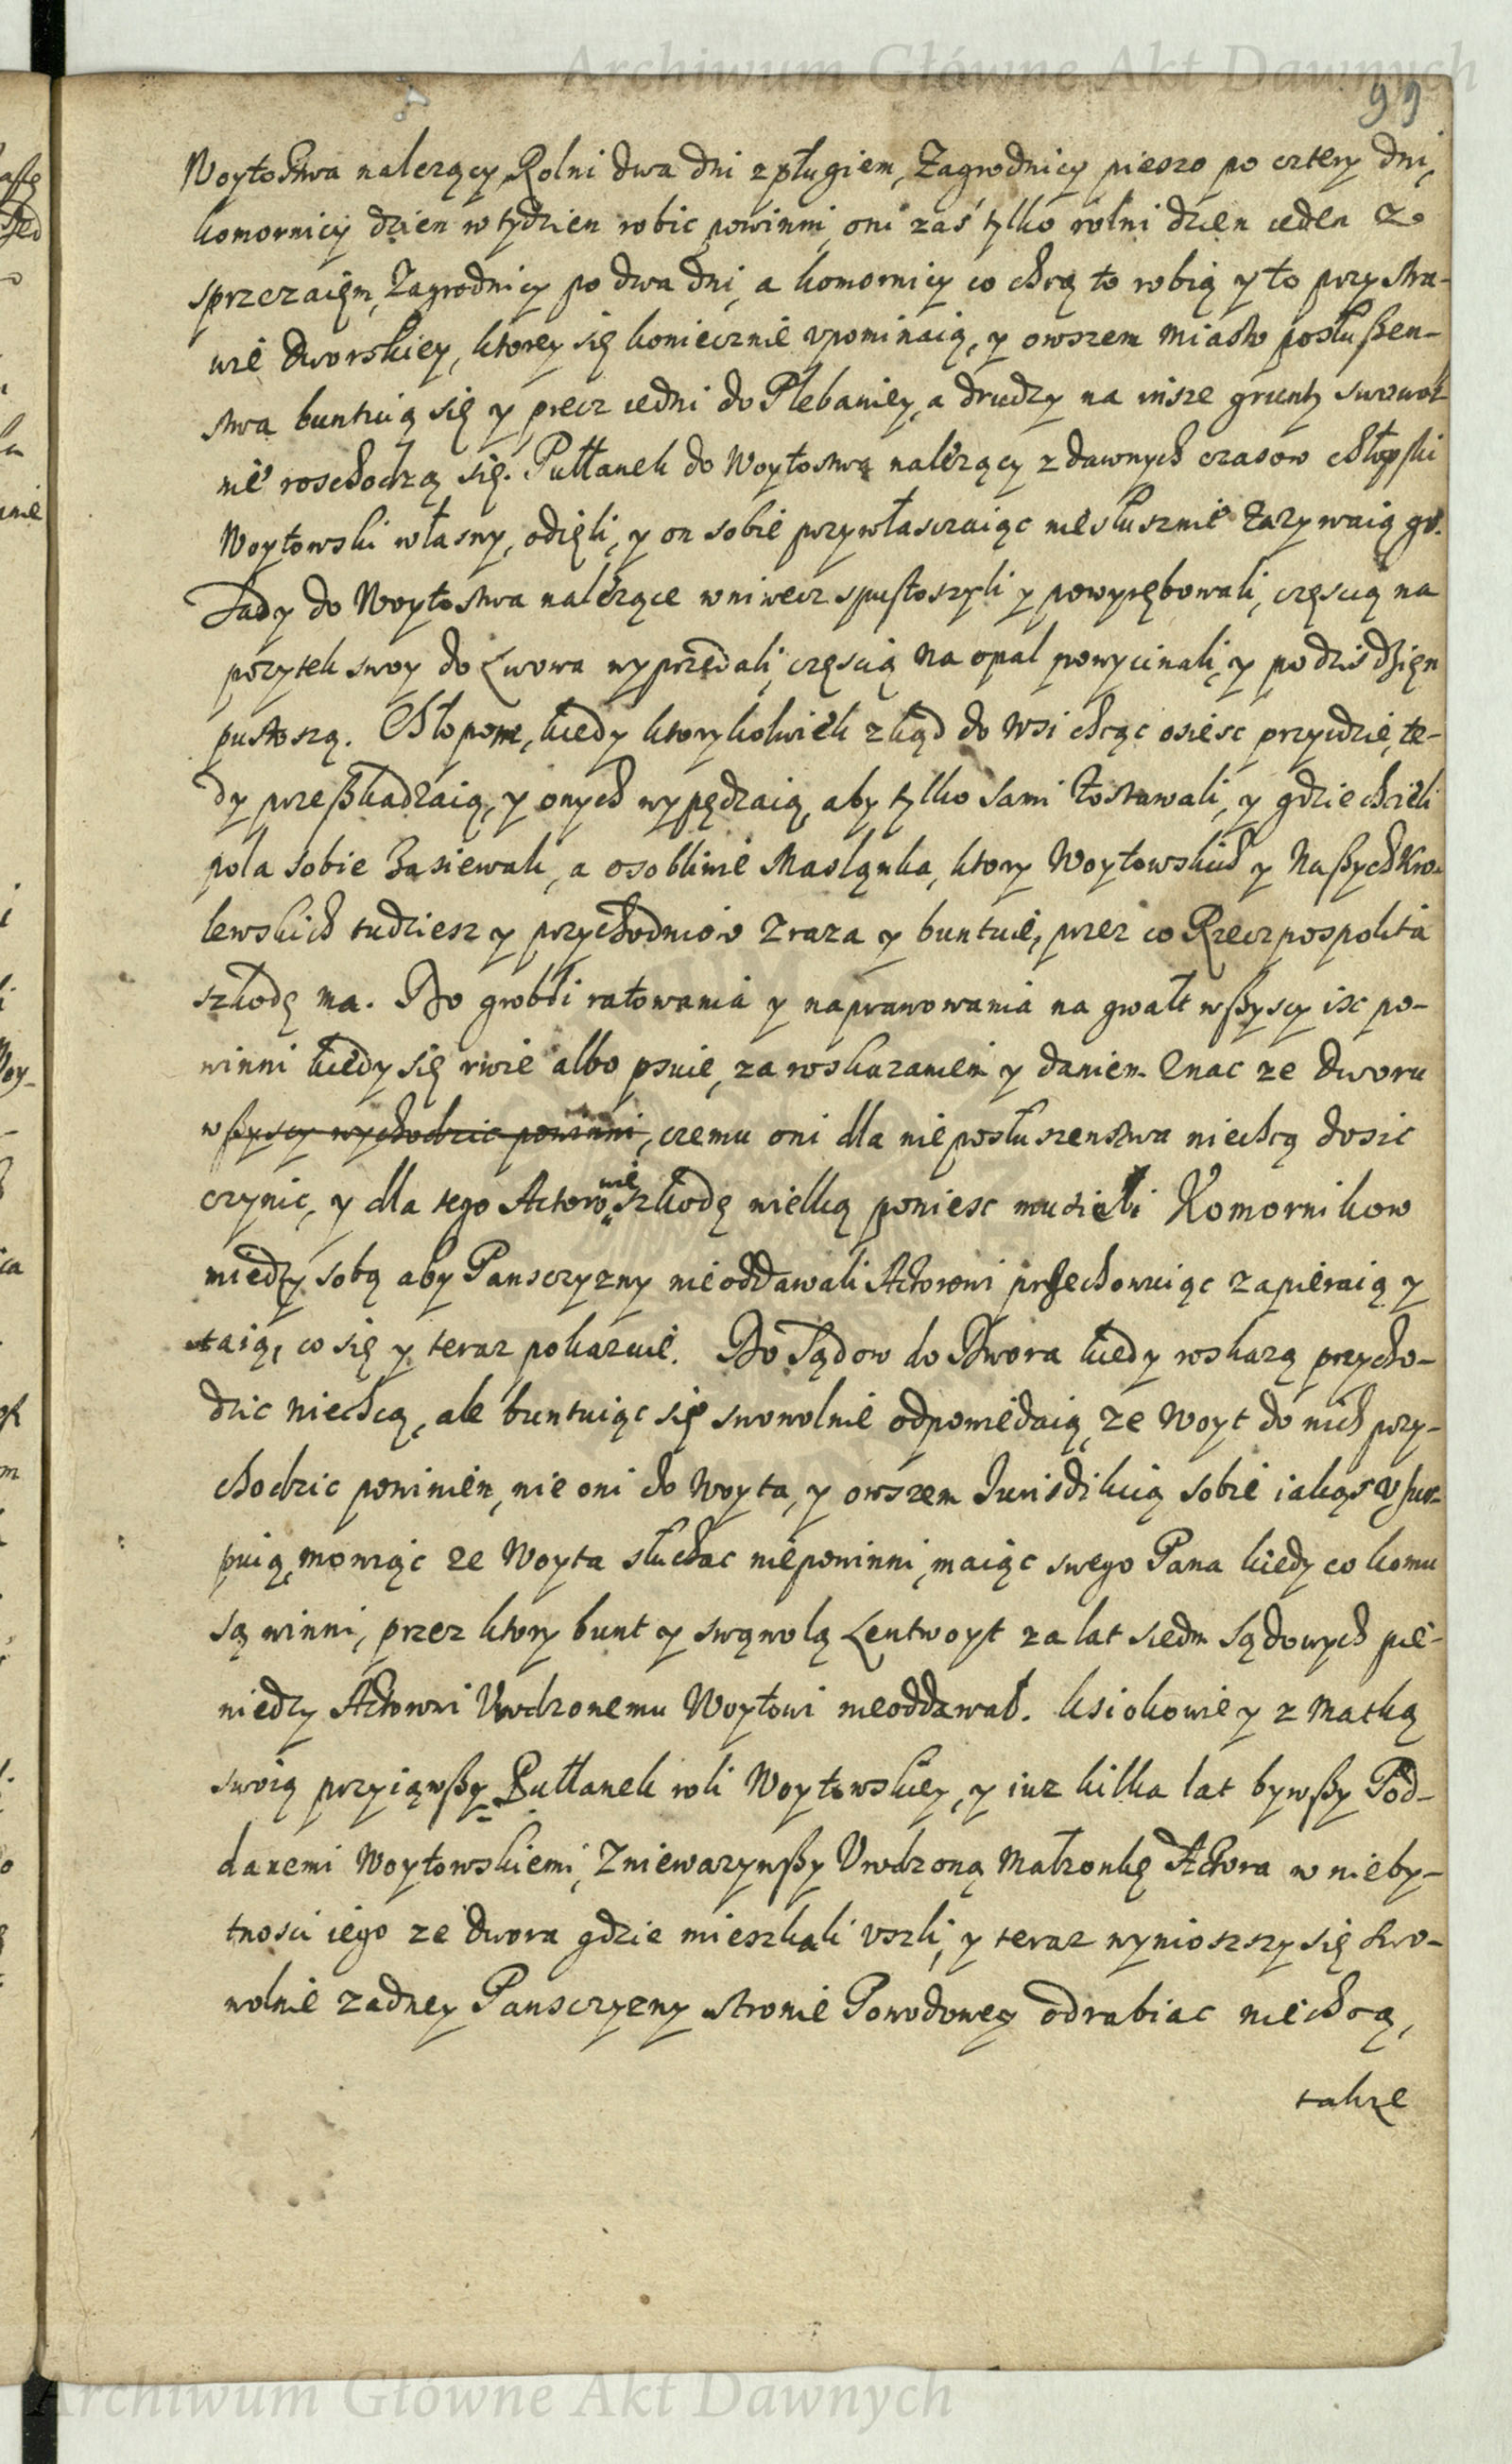 Archiwum Główne Akt Dawnych
99
Woytostwa nalezący, Rolni dwa dni z pługiem, Zagrodnicy pieszo po cztery dni,
komornicy dzien w tydzien robic powinni, oni zaś tylko rolni dzien ieden ze
sprzezaięm, Zagrodnicy po dwa dni, a komornicy co chcą to robią y to przy stra-
wie dworskiey, ktorey się koniecznie vpominaią, y owszem miasto posłußen-
stwa buntuią się y precz iedni do Plebaniey, a drudzy na insze grunty swowol
nie roschodzą się. Pułłanek do Woytostwa nalézący z dawnych czasow chłopski
Woytowski własny, odięli, y on sobie przywłasczaiąc niesłusznie zazywaią go.
Sady do Woytostwa nalézące wniwecz spustoszyli y powyrębowali, częscią na
pozytek swoy do Lwowa wyprzedali, częscią na opal powycinali, y po dzis dzięn
pustoszą. Chłopom, kiedy ktorykolwiek zkąd do wsi chcąc osiesc przyidzie, te-
dy preßkadzaią, y onych wypędzaią, aby tylko sami zostawali, y gdzie chcieli
pola sobie Zasiewali, a osobliwie Masląnka, ktory Woytowskich y Naßych Kro-
lewskich tudziesz y przychodniów zraza y buntuie, przez co Rzeczpospolita
szkodę ma. Do grobli ratowania y naprawowania na gwałt wßyscy isc po-
winni kiedy się rwie albo psuie, za wskazaniem y daniem znac ze dworu
wßyscy wychodzic powinni, czemu oni dla nieposłuszenstwa niechcą dosic
czynic, y dla tego Actorowie szkodę wielką poniesc musieli Komornikow
między sobą aby Panscyzny nieoddawali Actorowi przechowuiąc zapieraią y
taią, co się y teraz pokazuie. Do Sądow do Dwora kiedy wskazą przycho-
dzic niechcą, ale buntuiąc się swowolnie odpowiedaią, ze Woyt do nich przy-
chodzic powinien, nie oni do Woyta, y owszem Jurisdikcią sobie iakąs vsur-
puią, mowiąc ze Woyta słuchac niepowinni, maiąc swego Pana kiedy co komu
są winni, przez ktory bunt y swąwolą Lentwoyt za lat siedm sądowych pie-
niedzy Actorowi Vrodzonemu Woytowi nieoddawał. Ksiokowie y z Matką
swoią przyiąwßy Pułłanek roli Woytowskiey, y iuz kilka lat bywßy Pod-
danemi Woytowskiemi, Zniewazywßy Vrodzoną Małzonkę Actora w nieby-
tnosci iego ze dwora gdzie mieszkali vszli, y teraz wyniozszy się swo-
wolnie zadney Panscyzny stronie Powodowey odrabiac niechcą,
takze
Archiwum Główne Akt Dawnych